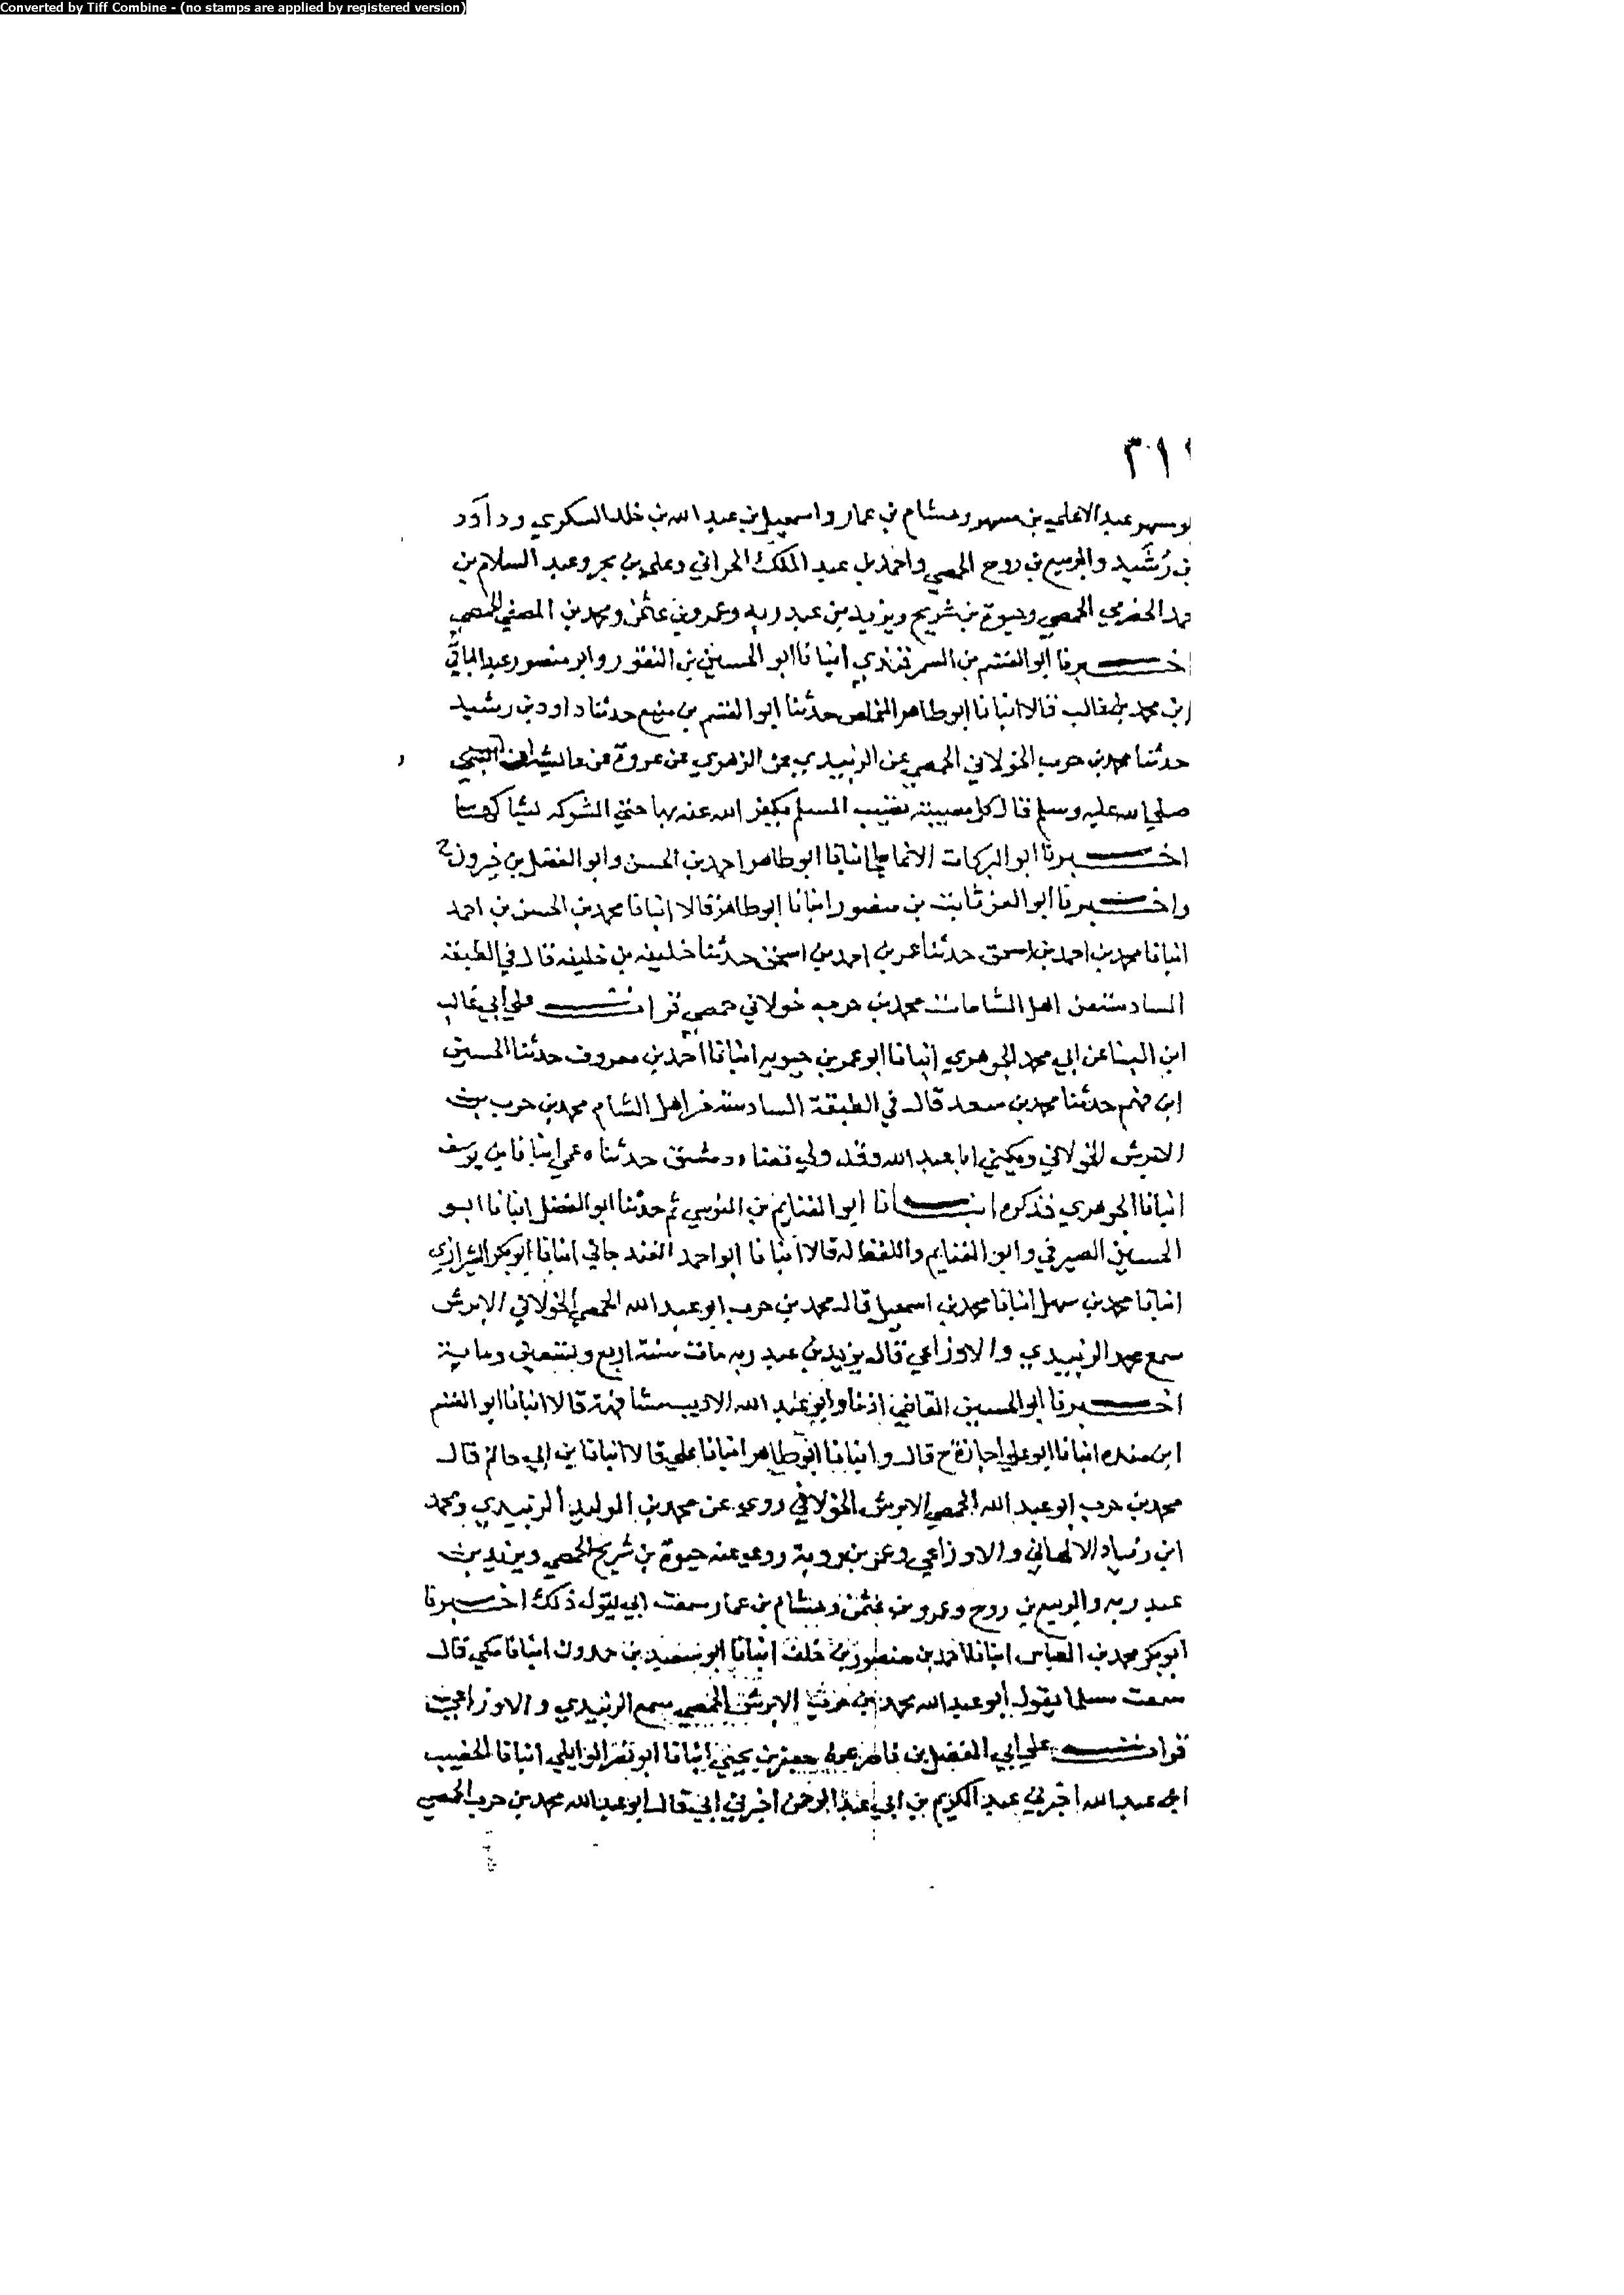 Converted by Tiff Combine - (no stamps are applied by registered version)
٣١١
مسهر عبد الاعلى بن مسهر وهشام بن عمار واسمعيل بن عبد الله بن خلد السكري وداود
بن رُشَيد والربيع بن روح الحمصي واحمد بن عبد الملك الحراني وعلي بن بحر وعبد السلام بن
الحضرمي الحمصي وحيوة بن شريح ويزيد بن عبد ربه وعمرو بن عثمن ومحمد بن المصفي الحمصي
اخبرنا ابو القسم بن السمرقندي انبانا ابو الحسين بن النقور وابو منصور عبد الباقي
ابن محمد بن غالب قالا انبانا ابو طاهر المخلص حدثنا ابو القسم بن منيع حدثنا داود بن رشيد
حدثنا محمد بن حرب الخولاني الحمصي عن الزبيدي عن الزهري عن عروة عن عايشة النبي
صلى الله عليه وسلم قال كل مصيبة تصيب المسلم يكفر الله عنه بها حتى الشوكه
اخبرنا ابو البركات الانماطي انبانا ابو طاهر احمد بن الحسن وابو الفضل بن خيرون ح
واخبرنا ابو العز ثابت بن منصور انبانا ابو طاهر قالا انبانا محمد بن الحسن بن احمد
انبانا محمد بن احمد بن اسحق حدثنا عمر بن احمد بن اسحق حدثنا خليفه بن خليفه قال في الطبقة
السادسة من اهل الشامات محمد بن حرب خولاني حمصي قرات على ابي غالب
ابن البنا عن ابي محمد الجوهري انبانا ابو عمر بن حيويه انبانا احمد بن معروف حدثنا الحسين
ابن فهم حدثنا محمد بن سعد قال في الطبقة السادسة من اهل الشام محمد بن حرب بن
الابرش الخولاني ويكنى ابا عبد الله وقد ولي قضاء دمشق حدثنا عمي انبانا بن يوسف
انبانا الجوهري فذكره انبانا ابو الغنايم بن النرسي ثم حدثنا ابو الفضل انبانا ابو
الحسين الصيرفي وابو الغنايم واللفظ له قالا انبانا ابو احمد الغندجاني انبانا ابو بكر الشيرازي
انبانا محمد بن سهل انبانا محمد بن اسمعيل قال محمد بن حرب ابو عبد الله الحمصي الخولاني الابرش
سمع محمد الزبيدي والاوزاعي قال يزيد بن عبد ربه مات سنة اربع وتسعين وماية
اخبرنا ابو الحسين القاضي اذنا وابو عبد الله الاديب مشافهة قالا انبانا ابو القسم
ابن منده انبانا ابو علي اجازة ح قال وانبانا ابو طاهر انبانا علي قالا انبانا بن ابي حاتم قال
محمد بن حرب ابو عبد الله الحمصي الابرش الخولاني روى عن محمد بن الوليد الزبيدي ومحمد
ابن زياد الالهاني والاوزاعي وعمر بن روبة روى عنه حيوة بن شريح الحمصي ويزيد بن
عبد ربه والربيع بن روح وعمرو بن عثمن وهشام بن عمار سمعت ابي يقول ذلك اخبرنا
ابو بكر محمد بن العباس انبانا احمد بن منصور بن خلف انبانا ابو سعيد بن حمدون انبانا مكي قال
سمعت مسلما يقول ابو عبد الله محمد بن حرب الابرش الحمصي سمع الزبيدي والاوزاعي
قرات على ابي الفضل بن ناصر عن جعفر بن يحيى انبانا ابو نصر الوايلي انبانا الخصيب
ابن عبد الله اخبرني عبد الكريم بن ابي عبد الرحمن اخبرني ابي قال ابو عبد الله محمد بن حرب الحمصي